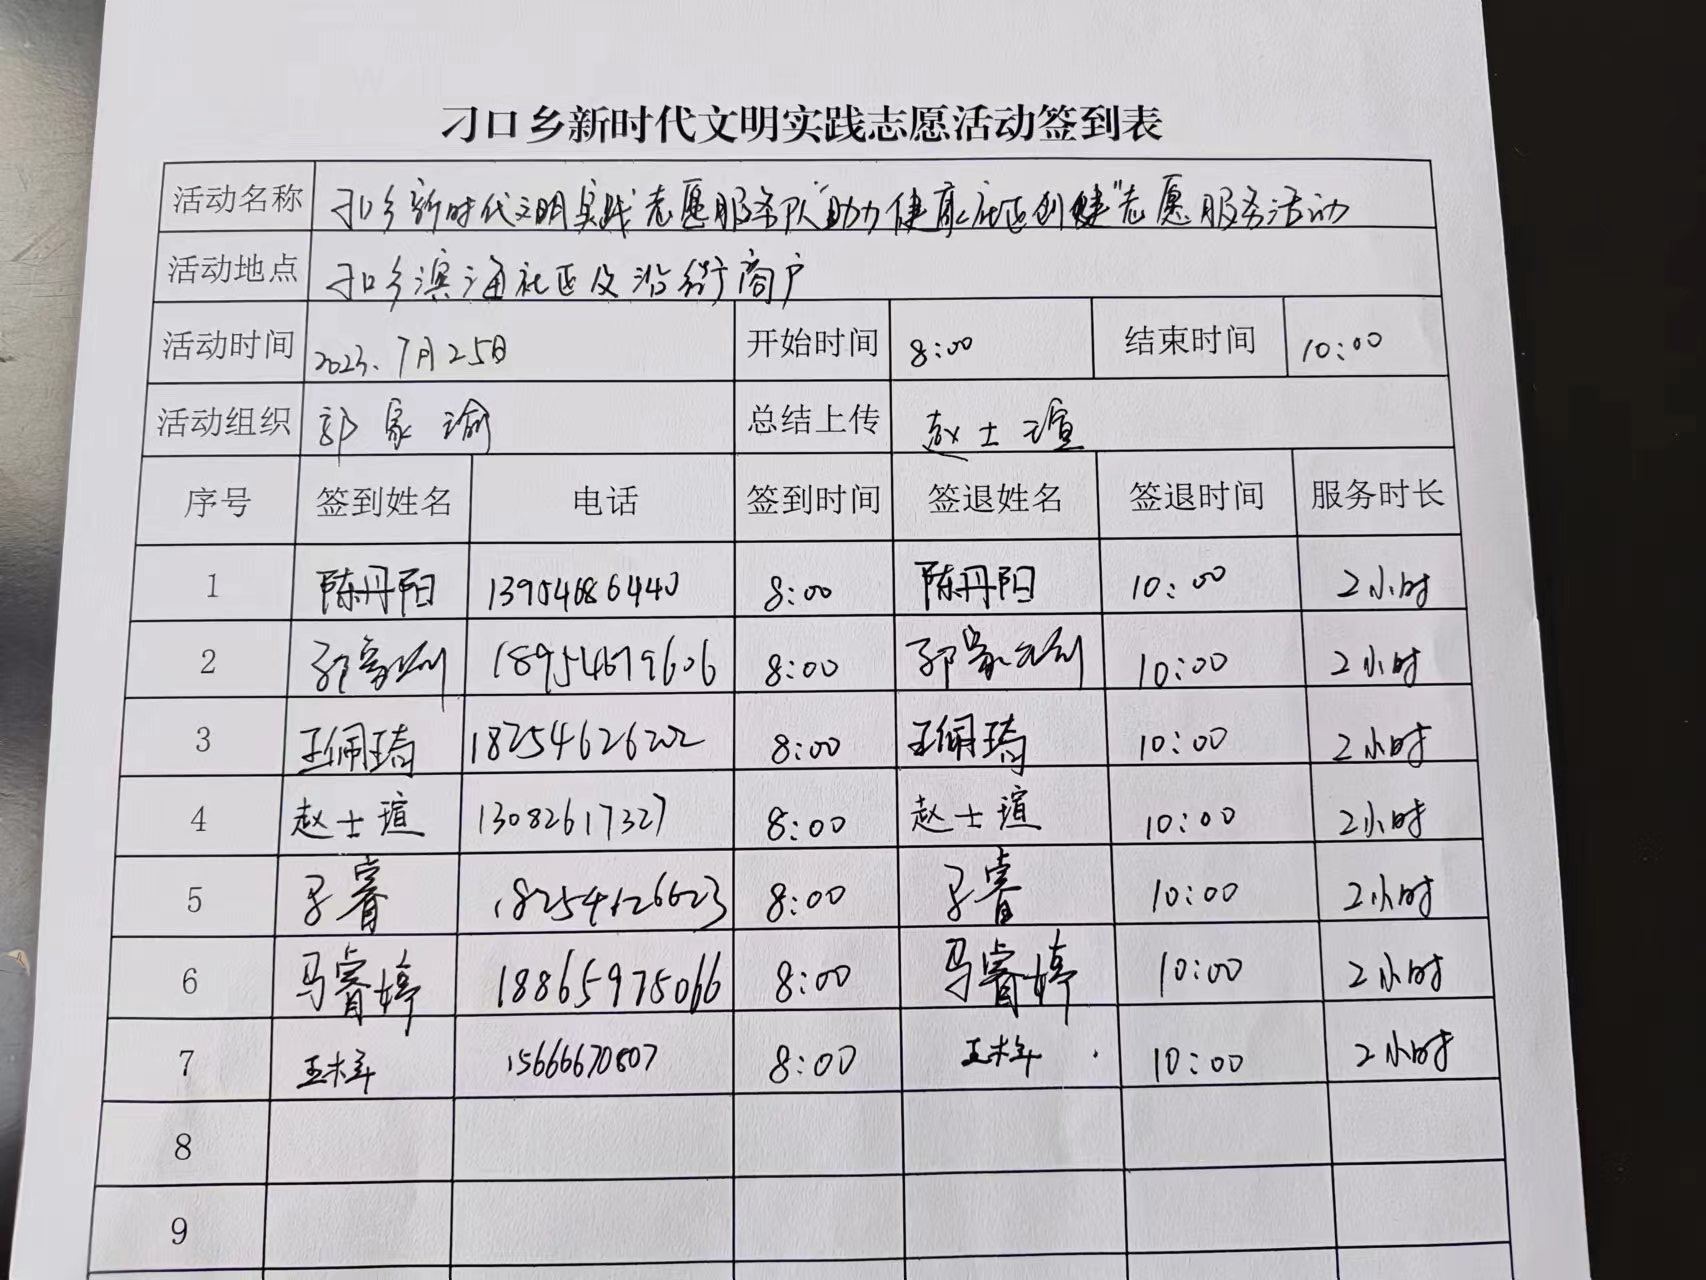 刁口乡新时代文明实践志愿活动签到表
活动名称 刁口乡新时代文明实践志愿服务队"助力健康社区创健"志愿服务活动
活动地点 刁口乡滨海社区及沿街商户
活动时间 2023.7月25日 开始时间 8:00 结束时间 10:00
活动组织 郭家瑜 总结上传 赵士瑄
序号 签到姓名 电话 签到时间 签退姓名 签退时间 服务时长
1 陈丹阳 13954686440 8:00 陈丹阳 10:00 2小时
2 18954679606 8:00 10:00 2小时
3 王佩琦 18254626202 8:00 王佩琦 10:00 2小时
4 赵士瑄 13082617327 8:00 赵士瑄 10:00 2小时
5 8:00 10:00 2小时
6 马睿婷 18865975066 8:00 马睿婷 10:00 2小时
7 15666670807 8:00 10:00 2小时
8
9